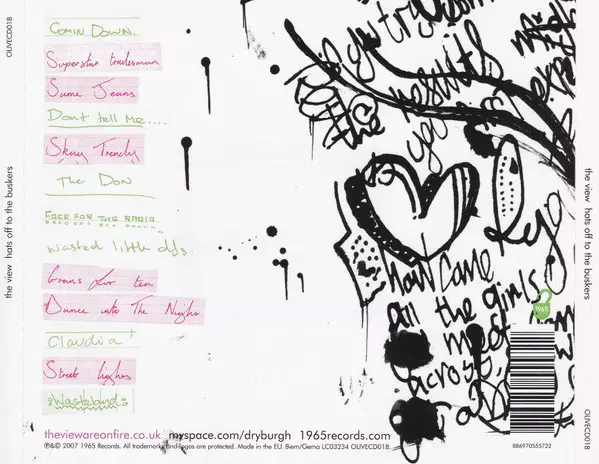 OLIVECD018
the view hats off to the buskers
Comin Down.
Superstar tradesman
Same Jeans
Dont tell Me....
Skag Trendy
The Don
FACE FOR THE RADIO
Wasted little djs.
Grans for tea
Dance into The Night
Claudia
Street lights
Wastelands
if you try
the results
you
now came
all the girls
meet
across
1965
the view hats off to the buskers
OLIVECD018
886970555722
theviewareonfire.co.uk myspace.com/dryburgh 1965records.com
℗&© 2007 1965 Records. All trademarks and logos are protected. Made in the EU. Biem/Gema LC03234 OLIVECD018.